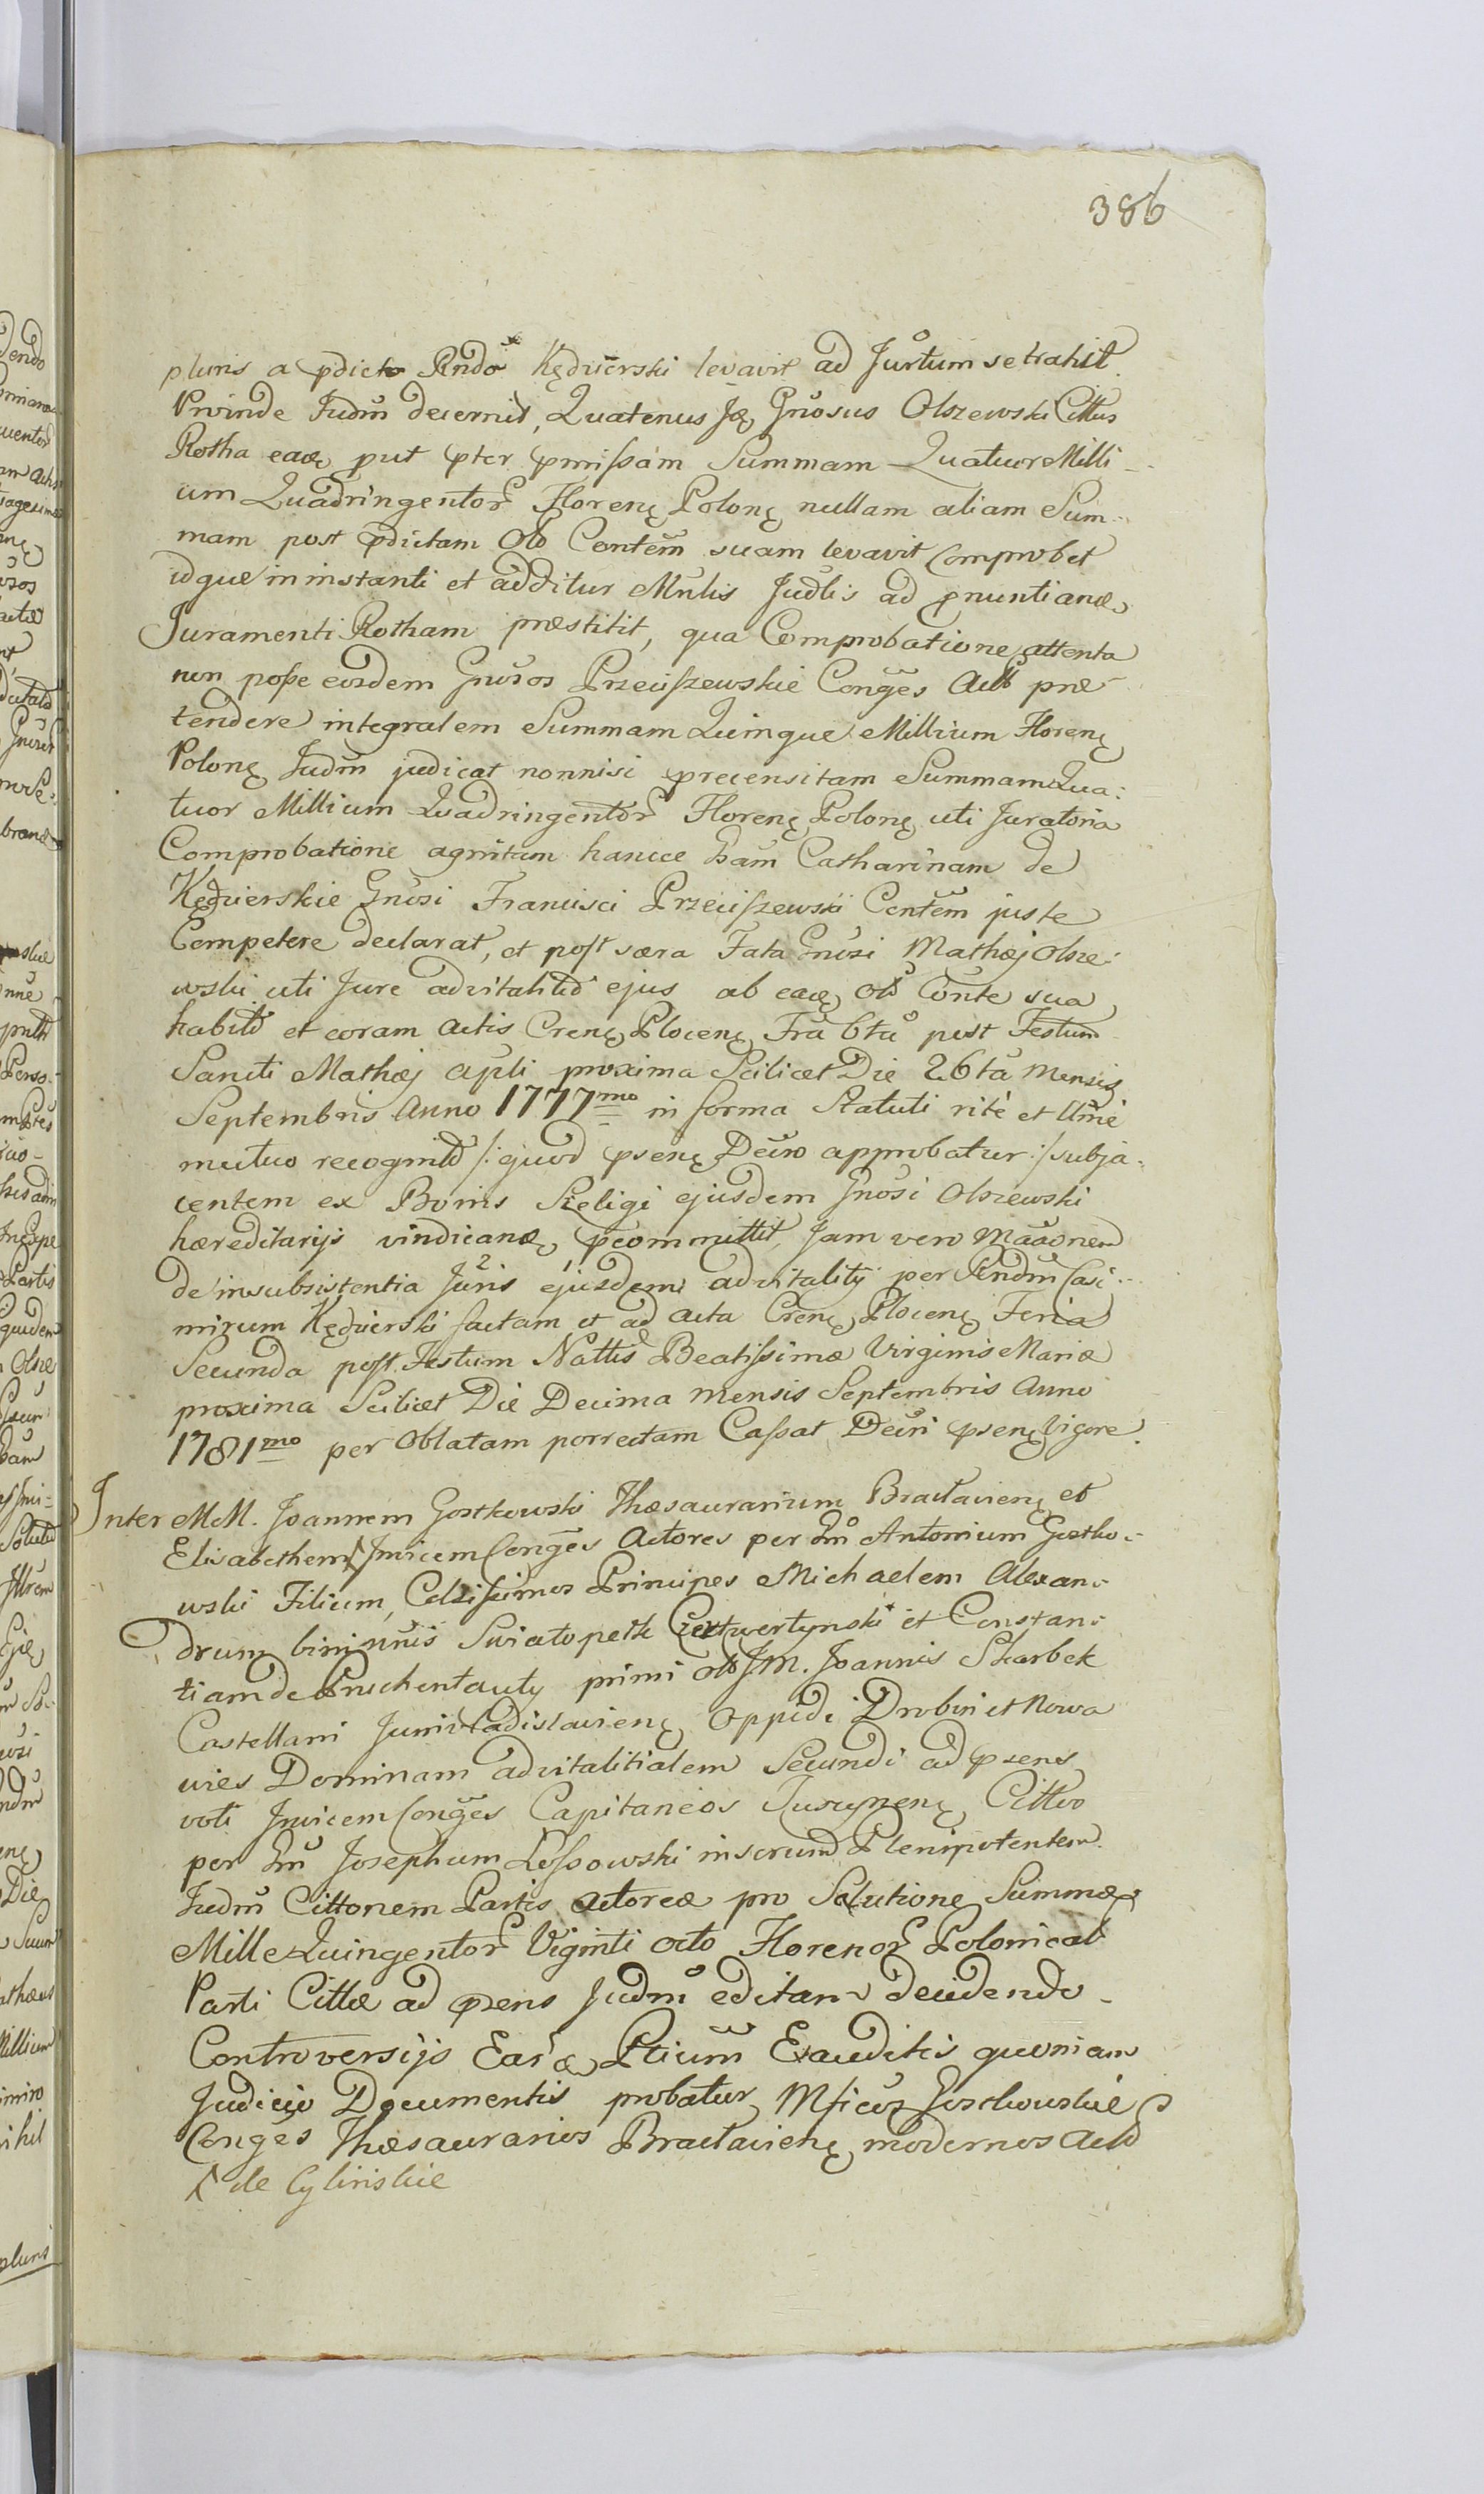 386
pluris a pdicto Rndo Kędzierski levavit ad Jurtum se trahit.
Proinde Judm decernit, Quatenus Jdę Gnosus Olszewski Cittus
Rotha eadę, put pter pmissam Summam Quatuor Milli-
um Quadringentor Florenę Polonę nullam aliam Sum-
mam post pdictam olo Contem suam levavit Comprobet
idque in instanti et additur Mnlis Judlis ad pnuntiandę
Juramenti Rotham præstitit, qua Comprobatione attenta
non posse eosdem Gnosos Przeciszewskie Conges Act præ-
tendere integralem Summam Quinque Millium Florenę
Polonę Judm judicat nonnisi precensitam Summam Qua:
tuor Millium Quadringentor Florenę Polonę uti Juratoria
Comprobatione agnitam hancce Gsam Catharinam de
Kędzierskie Gnosi Francisci Przeciszewski Contem juste
Competere declarat, et post særa Fata Gnosi Mathæj Olsze:
wski uti Jure advitalitio ejus ab eadę olo Conte sua
habito et coram Actis Crenę Plocenę Fra 6ta post Festum
Sancti Mathæj Apli proxima Scilicet Die 26ta Mensis
Septembris Anno 1777mo in forma Statuti ritè et llme
mutuo recognito /: quod psenę Decro approbatur :/ subja-
centem ex Bonis Szeligi ejusdem Gnosi Olszewski
hæreditarijs vindicandę, pcommittit, Jam vero Maaonem
de insubsistentia Juris ejusdem advitalitij per Rndm Casi-
mirum Kędzierski factam et ad Acta Crenę Plocenę Feria
Secunda post Festum Nattis Beatissimæ Virginis Mariæ
proxima Scilicet Die Decima Mensis Septembris Anno
1781mo per Oblatam porrectam Cassat Decri psenę Vigore.
Inter MM. Joannem Gostkowski Thesaurarium Bractavienę et
Elisabethem Λ Jnvicem Conges Actores per Gm Antonium Gostko-
wski Filium, Celsissimos Principes Michaelem Alexan-
drum binimis Swiatopełk Czetwertynski et Constan-
tiam de primi olo JM. Joannis Skarbek
Castellani Junivladislavienę Oppidi Drobin et Nowa
wies Dominam advitalitialem Secundi ad psens
voti Jnvicem Conges Capitaneos Cittos
per Gm Josephum Lessowski Plenipotentem.
Judm Cittonem Partis Actoreæ pro Solutione Summæ
Mille Quingentor Viginti octo Florenor Polonical
Parti Cittæ ad psens Judm editam decidendo.
Controversijs Eardę Ptium Exauditis quoniam
Judicio Documentis probatur Mficos Gostkowskie
Conges Thesaurarios Bractavienę modernos Act
Λ de Cylinskie